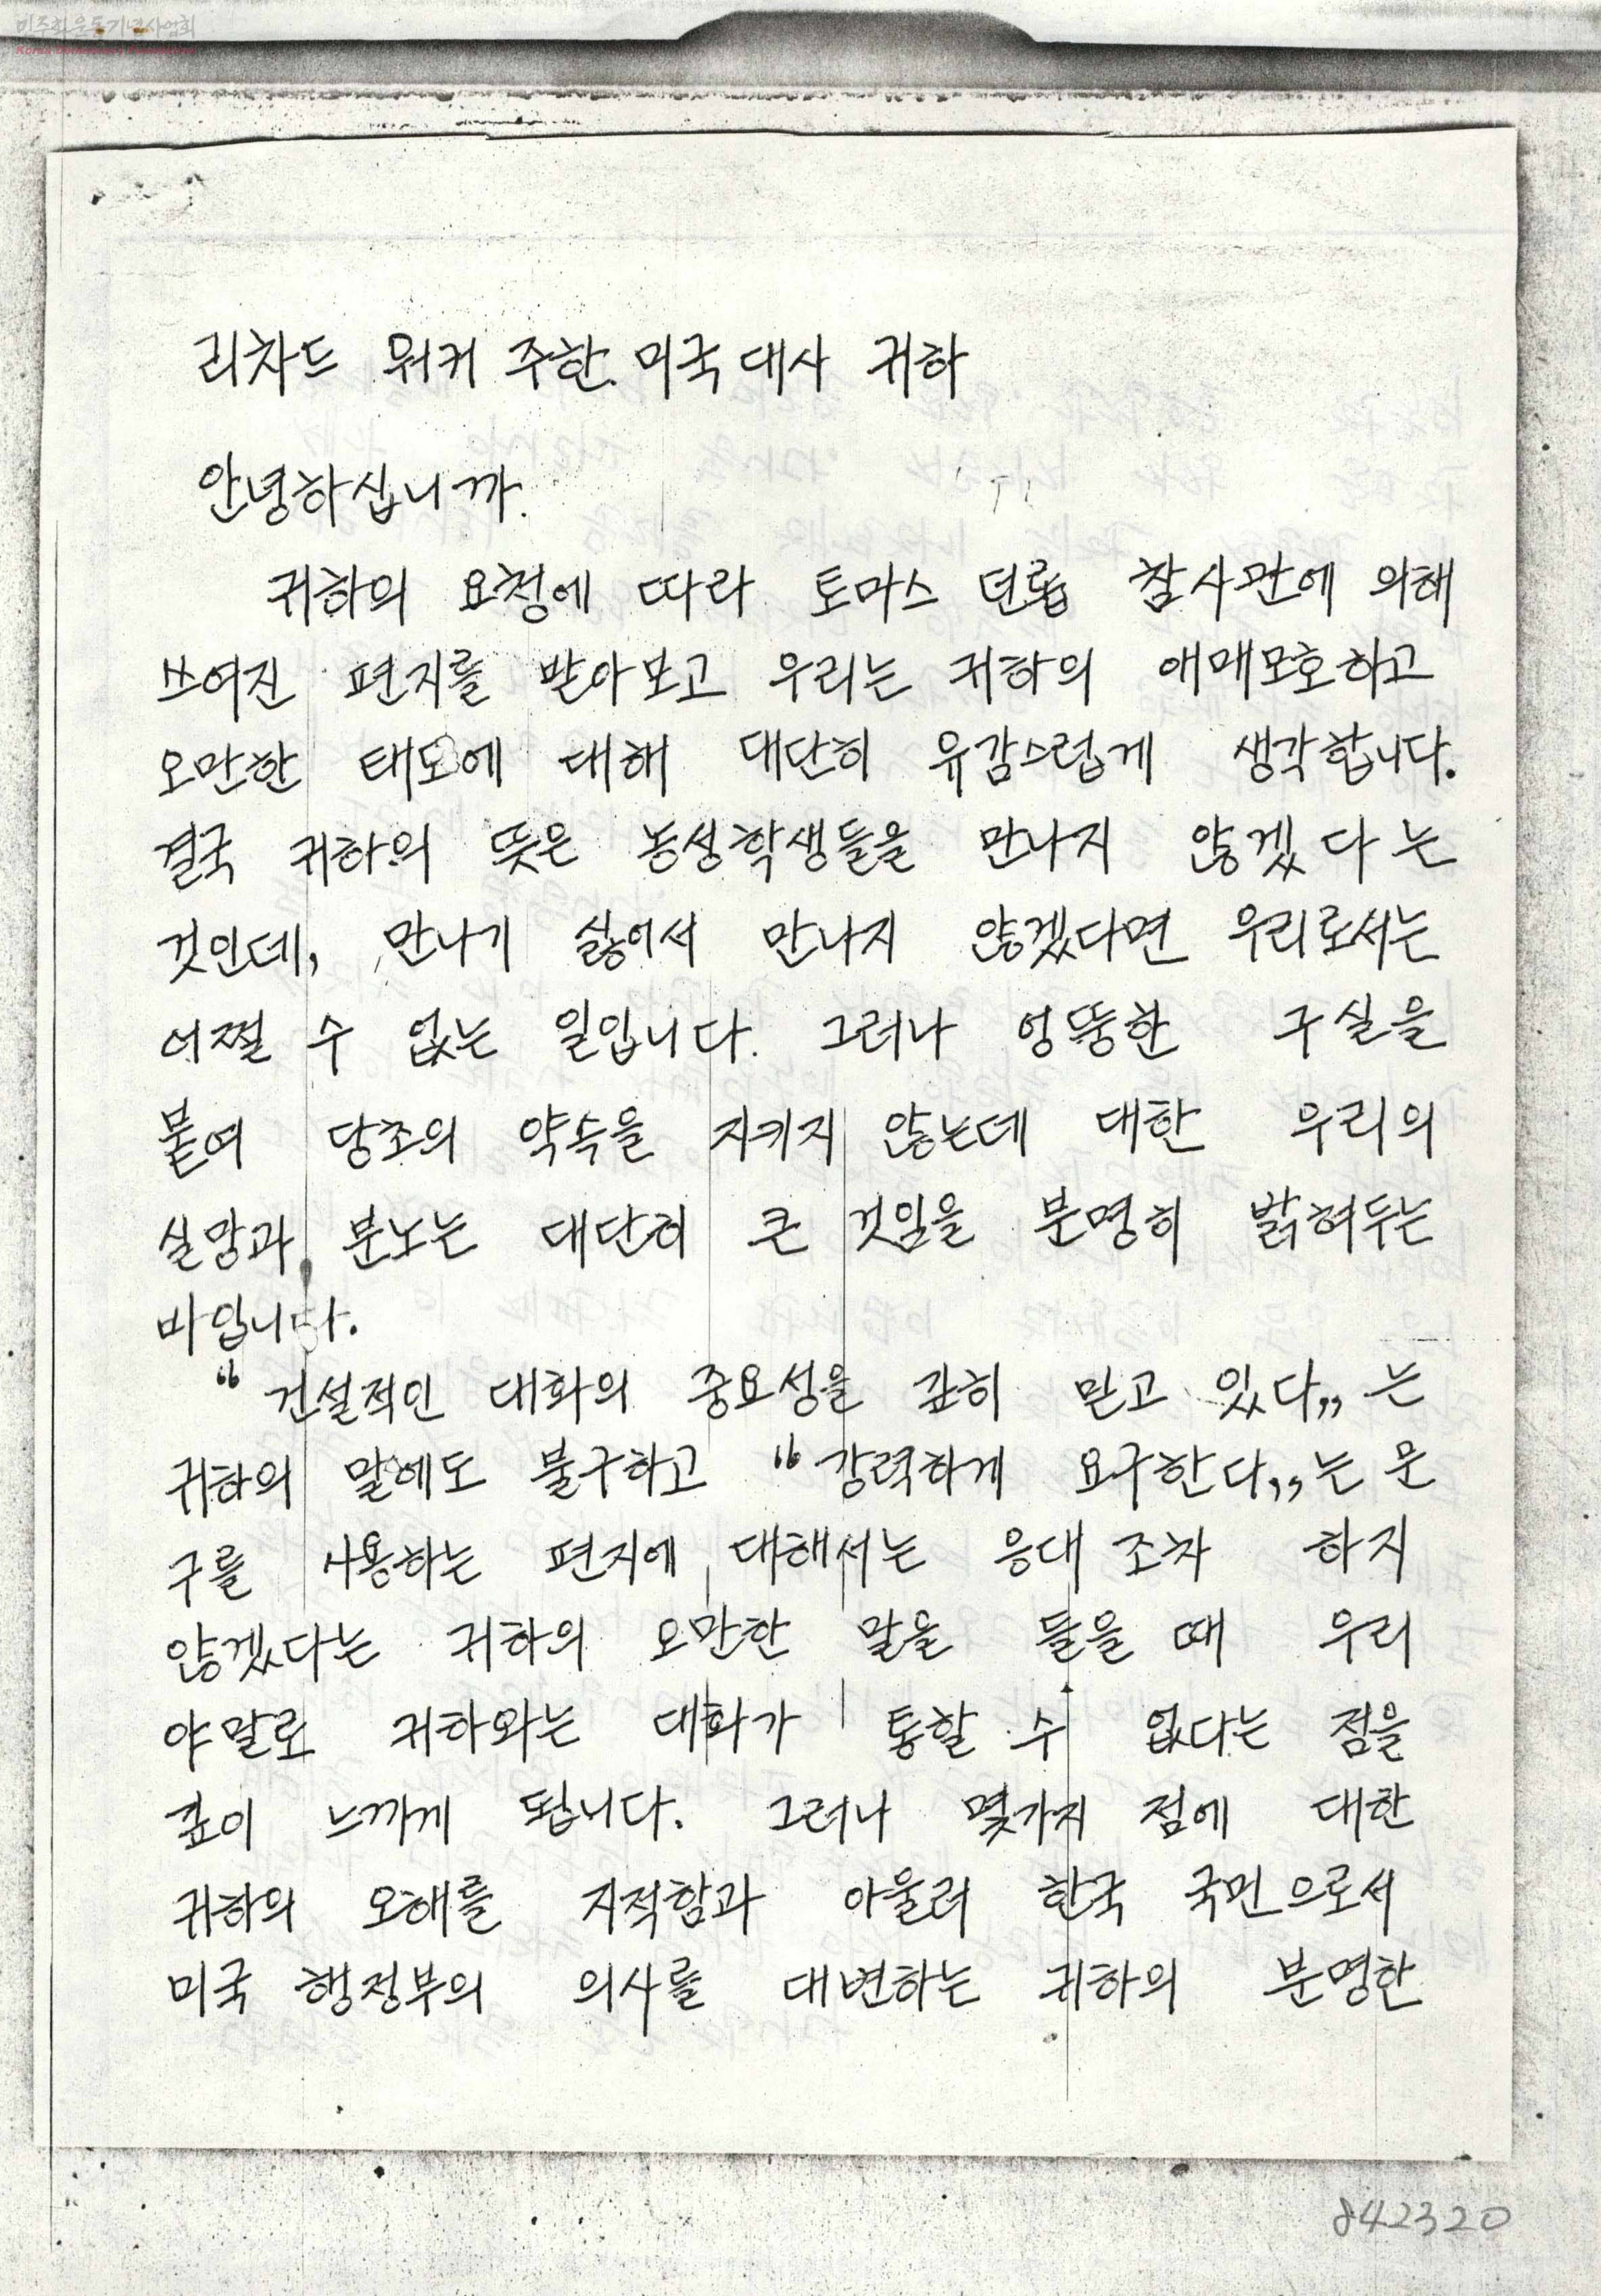 민주화운동기념사업회
리차드 워커 주한 미국 대사 귀하
안녕하십니까.
귀하의 요청에 따라 토마스 던롭 참사관에 의해
쓰여진 편지를 받아보고 우리는 귀하의 애매모호하고
오만한 태도에 대해 대단히 유감스럽게 생각합니다.
결국 귀하의 뜻은 농성학생들을 만나지 않겠다는
것인데, 만나기 싫어서 만나지 않겠다면 우리로서는
어쩔 수 없는 일입니다. 그러나 엉뚱한 구실을
붙여 당초의 약속을 지키지 않는데 대한 우리의
실망과 분노는 대단히 큰 것임을 분명히 밝혀두는
바입니다.
“건설적인 대화의 중요성을 깊히 믿고 있다„는
귀하의 말에도 불구하고 “강력하게 요구한다„는 문
구를 사용하는 편지에 대해서는 응대 조차 하지
않겠다는 귀하의 오만한 말을 들을 때 우리
야말로 귀하와는 대화가 통할 수 없다는 점을
깊이 느끼게 됩니다. 그러나 몇가지 점에 대한
귀하의 오해를 지적함과 아울러 한국 국민으로서
미국 행정부의 의사를 대변하는 귀하의 분명한
842320